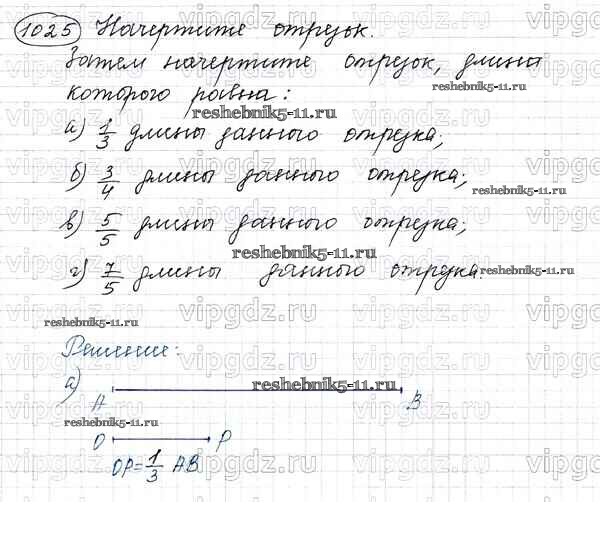 1025 Начертите отрезок.
Затем начертите отрезок, длина
которого равна:
а) 1/3 длины данного отрезка;
б) 3/4 длины данного отрезка;
в) 5/5 длины данного отрезка;
г) 7/5 длины данного отрезка.
Решение:
а)
A B
O P
OP = 1/3 AB
vipgdz.ru
reshebnik5-11.ru